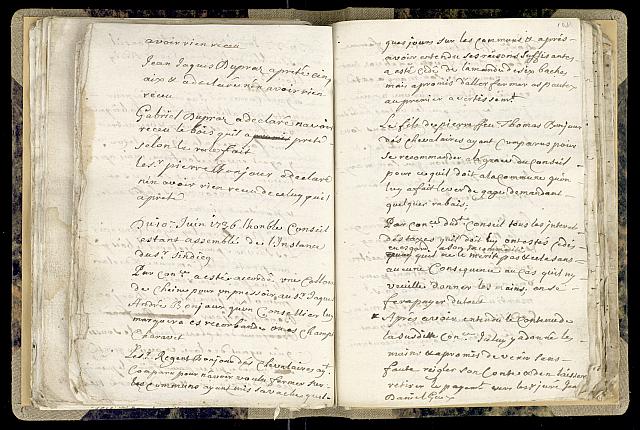 avoir rien receu
Jean Jaques Dupraz a prêté cinq
aix & a declaré n'en avoir rien
receu
Gabriel Dupraz a declaré n'avoir
receu le bois qu'il a prété
selon le role fait
les.r pierre Bonjour a declaré
n'en avoir rien receu de celuy qu'il
a prété
Du 10.e Juin 1736 l'honble Conseil
estant assemblé de l'Instance
du Sr Sindicq
Par con.e a esté accordé une Collone
de chesne pour un pressoir au Sr Jaques
André Bonjour qu'un Conseillier luy
marquera es recorbandes ou es Champs
Charavet
Les Regent Bonjour des Chevalaires ayt
Comparu pour n'avoir voulu fermer sur
les Communs ayant mis sa vache quel-
ques jours sur les communs & aprés
avoir entendu ses raisons suffisantes
a esté cedé de l'amande de sa vache
mais a promis d'aller fermer as pautex
au premier avertissemt.
Le fils de pierre feu Thomas Bonjour
dés Chevalaires ayant Comparu pour
se recommander a la grace du Conseil
pour ce qu'il doit a la commune qu'on
luy a fait lever de gage demandant
quelque rabais.
Par con.e dud.t Conseil tous les interets
des tages qu'il doit luy ont estés cedés
quoy quil ne le merite pas & cela sans
aucune Consequence au cas qu'il n'y
veuille donner les mains on se
fera payer du tout
Aprés avoir entendu le Contenu de
la susditte Con.e Il a luy y a donné les
mains & a promis de venir sens
faute regler son Conte & d'en laisser
retirer le payemt
Daniel